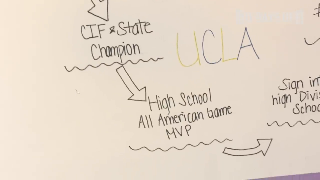 CIF & State
Champion
UCLA
High School
All American Game
MVP
Sign
high